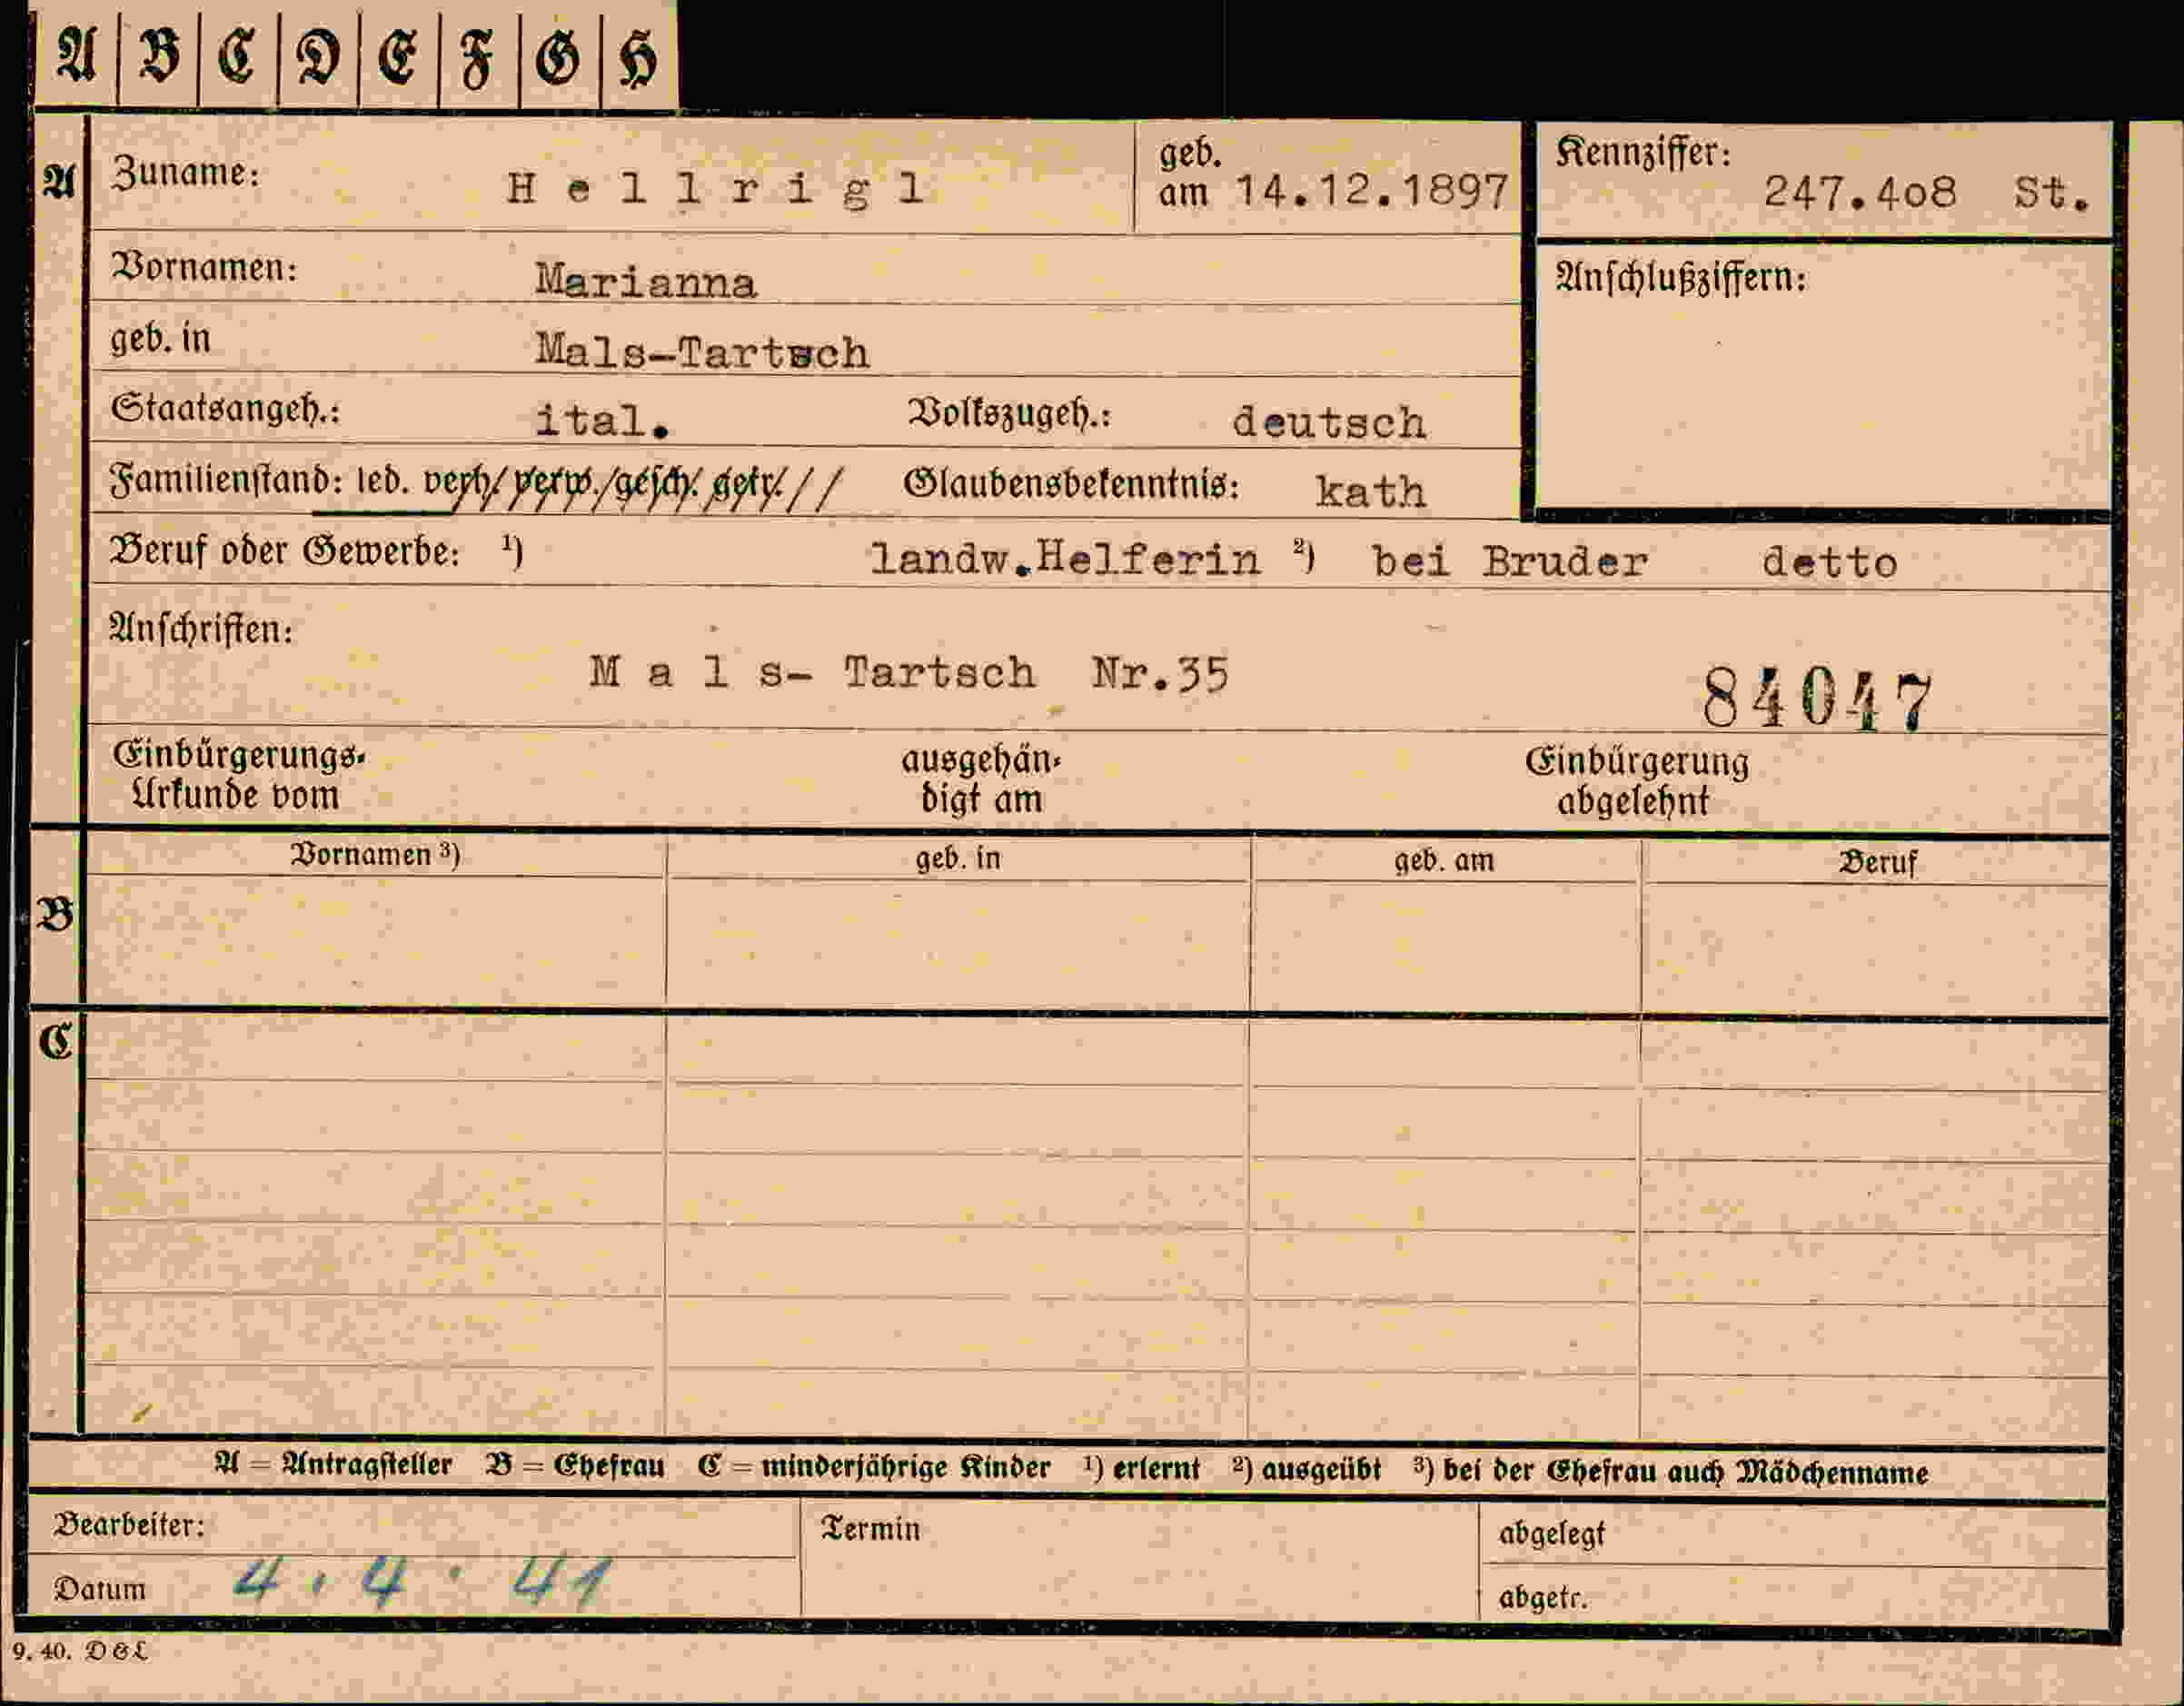 A B C D E F G H
A Zuname: Hellrigl geb. am 14.12.1897 Kennziffer: 247.4o8 St.
Vornamen: Marianna Anschlußziffern:
geb. in Mals-Tartsch
Staatsangeh.: ital. Volkszugeh.: deutsch
Familienstand: led. verh. verw. gesch. getr. Glaubensbekenntnis: kath
Beruf oder Gewerbe: 1) landw.Helferin 2) bei Bruder detto
Anschriften:
Mals- Tartsch Nr.35 84047
Einbürgerungs- ausgehän- Einbürgerung
Urkunde vom digt am abgelehnt
Vornamen 3) geb. in geb. am Beruf
B
C
A = Antragsteller B = Ehefrau C = minderjährige Kinder 1) erlernt 2) ausgeübt 3) bei der Ehefrau auch Mädchenname
Bearbeiter: Termin abgelegt
Datum 4.4.41 abgetr.
9.40. DGL